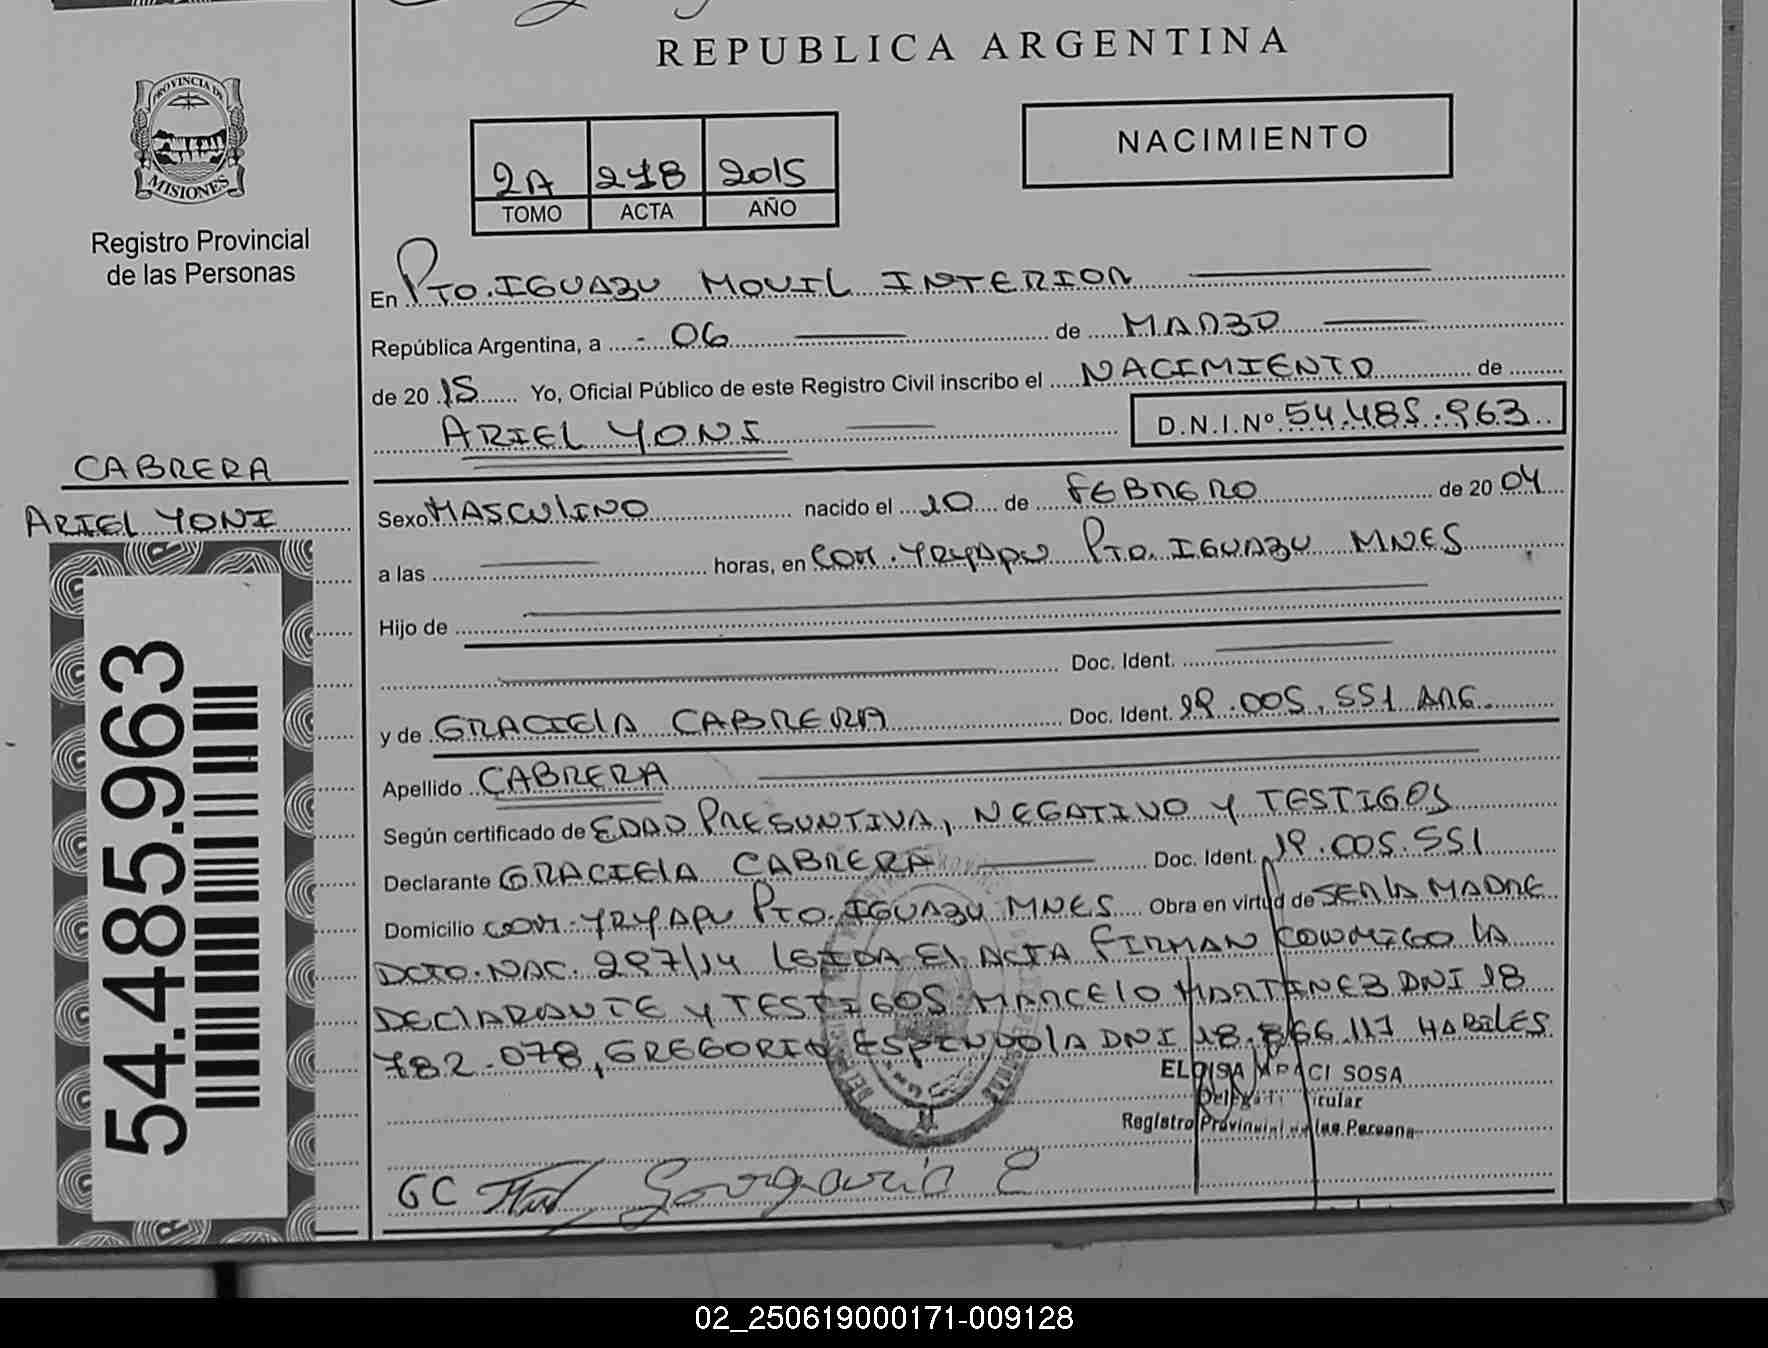 REPUBLICA ARGENTINA
PROVINCIA DE
MISIONES
Registro Provincial
de las Personas
NACIMIENTO
2A 278 2015
TOMO ACTA AÑO
En PTO. IGUAZU MOVIL INTERIOR
República Argentina, a - 06 de MARZO
de 2015 Yo, Oficial Público de este Registro Civil inscribo el NACIMIENTO de
ARIEL YONI D.N.I.Nº 54.485.963
CABRERA
ARIEL YONI
54.485.963
Sexo MASCULINO nacido el 20 de FEBRERO de 2004
a las horas, en COM. YRYAPU PTO. IGUAZU MNES
Hijo de
Doc. Ident.
y de GRACIELA CABRERA Doc. Ident. 19.005.551 ARG.
Apellido CABRERA
Según certificado de EDAD PRESUNTIVA, NEGATIVO Y TESTIGOS
Declarante GRACIELA CABRERA Doc. Ident. 19.005.551
Domicilio COM. YRYAPU PTO. IGUAZU MNES Obra en virtud de SER LA MADRE
DCTO. NAC. 297/14 LEIDA EL ACTA FIRMAN CONMIGO LA
DECLARANTE Y TESTIGOS MARCELO MARTINEZ DNI 18
782.078, GREGORIO ESPINDOLA DNI 18.866.117 HABILES
ELOISA SOSA
Titular
Registro Provincial de las Persona
GC
02_250619000171-009128